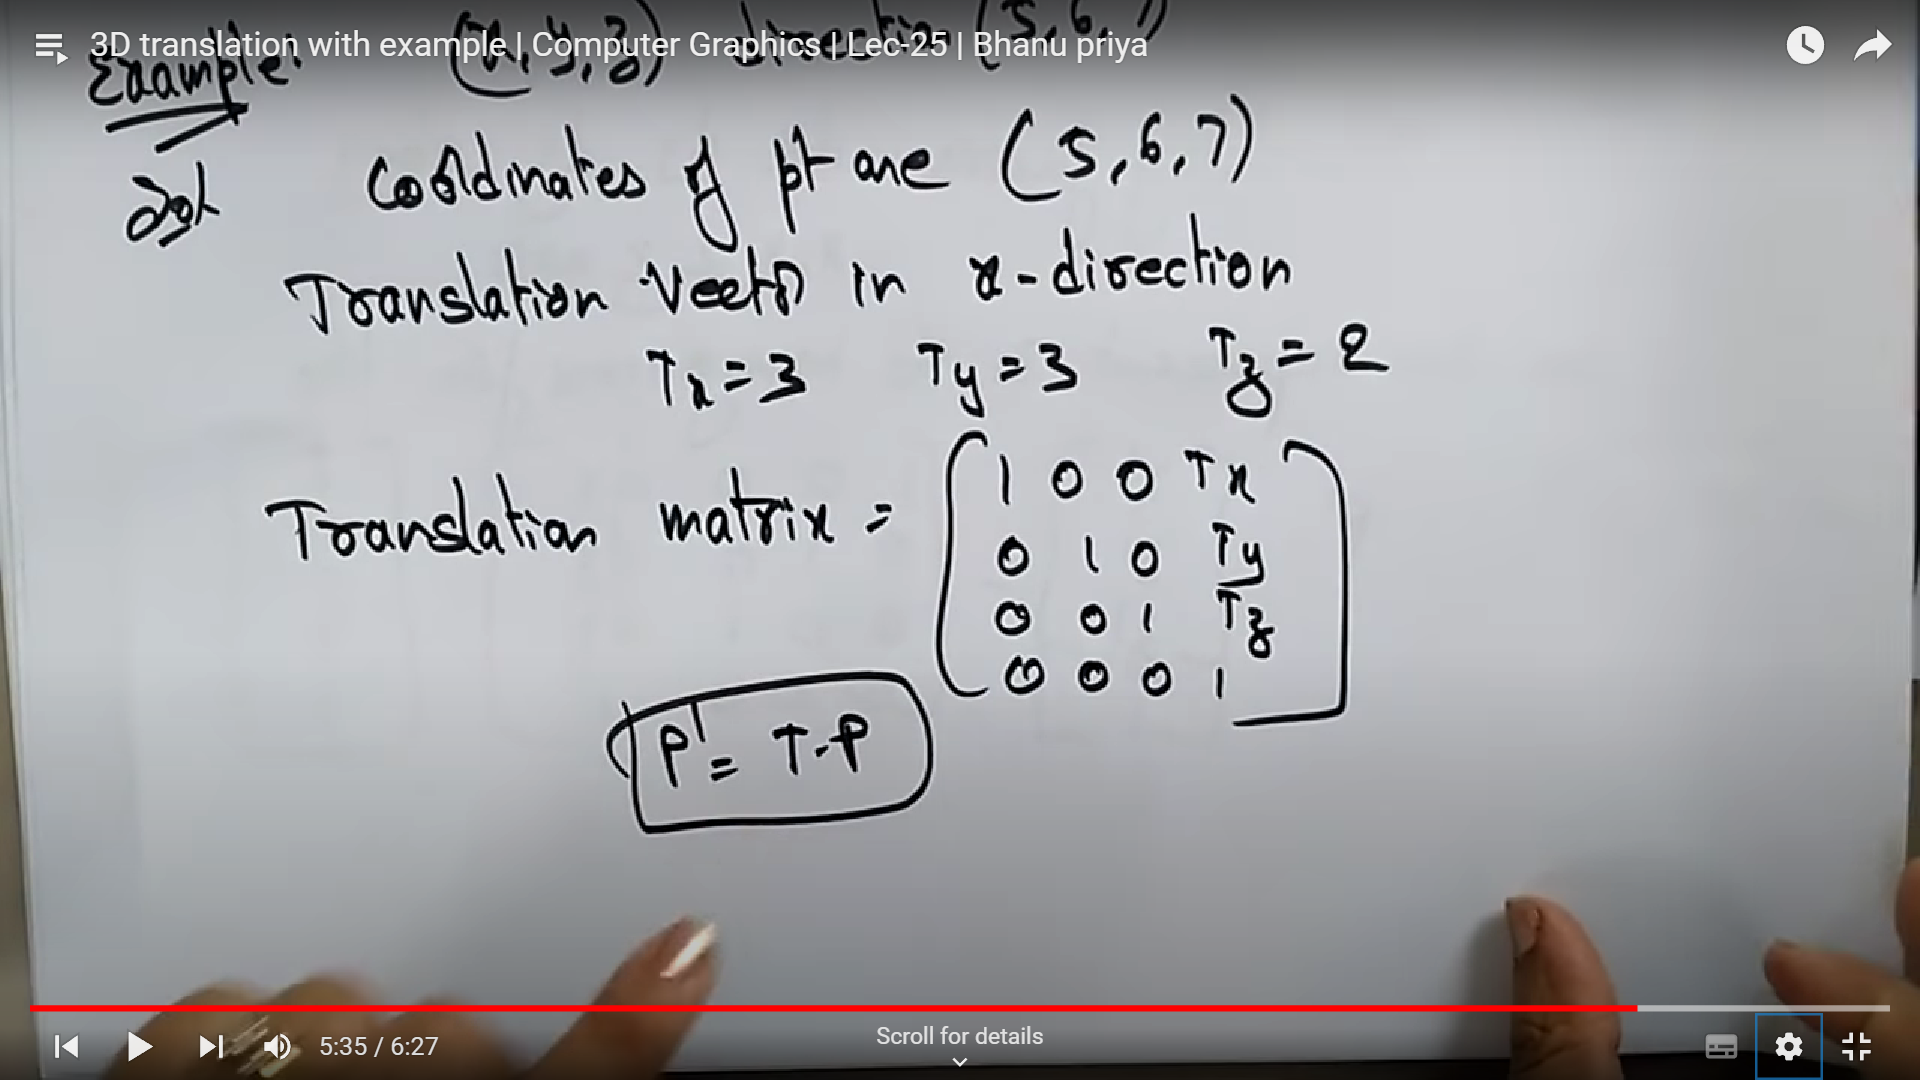 3D translation with example | Computer Graphics | Lec-25 | Bhanu priya
Example: (x, y, z) direction (5, 6, 7)
Sol Coordinates of pt are (5, 6, 7)
Translation Vector in x-direction
Tx = 3 Ty = 3 Tz = 2
Translation matrix =
1 0 0 Tx
0 1 0 Ty
0 0 1 Tz
0 0 0 1
P' = T.P
Scroll for details
5:35 / 6:27